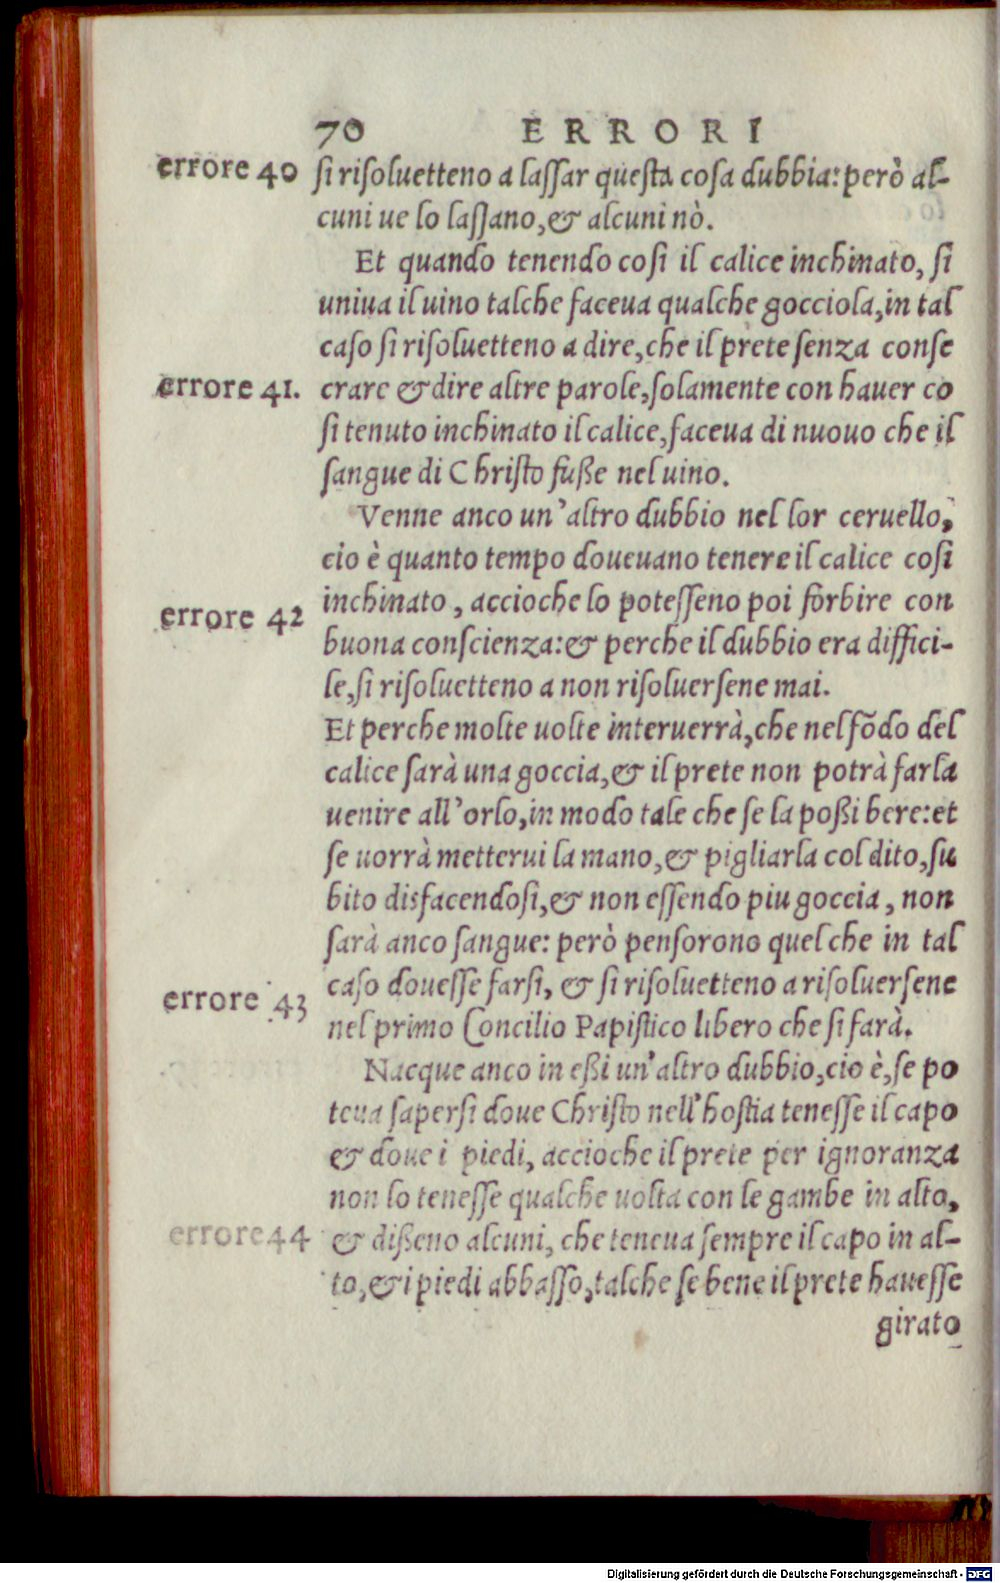 70 ERRORI
errore 40 ſi riſoluetteno a laſſar queſta coſa dubbia: però al-
cuni ue lo laſſano, & alcuni nò.
Et quando tenendo coſi il calice inchinato, ſi
uniua il uino talche faceua qualche gocciola, in tal
caſo ſi riſoluetteno a dire, che il prete ſenza conſe
errore 41. crare & dire altre parole, ſolamente con hauer co
ſi tenuto inchinato il calice, faceua di nuouo che il
ſangue di Chriſto fuße nel uino.
Venne anco un'altro dubbio nel lor ceruello,
cio è quanto tempo doueuano tenere il calice coſi
errore 42 inchinato, accioche lo poteſſeno poi ſorbire con
buona conſcienza: & perche il dubbio era diffici-
le, ſi riſoluetteno a non riſoluerſene mai.
Et perche molte uolte interuerrà, che nel fõdo del
calice ſarà una goccia, & il prete non potrà farla
uenire all'orlo, in modo tale che ſe la poßi bere: et
ſe uorrà metterui la mano, & pigliarla col dito, ſu
bito disfacendoſi, & non eſſendo piu goccia, non
ſarà anco ſangue: però penſorono quel che in tal
errore 43 caſo doueſſe farſi, & ſi riſoluetteno a riſoluerſene
nel primo Concilio Papiſtico libero che ſi farà.
Nacque anco in eßi un'altro dubbio, cio è, ſe po
teua saperſi doue Chriſto nell'hoſtia teneſſe il capo
& doue i piedi, accioche il prete per ignoranza
non lo teneſſe qualche uolta con le gambe in alto,
errore 44 & dißeno alcuni, che teneua ſempre il capo in al-
to, & i piedi abbaſſo, talche ſe bene il prete haueſſe
girato
Digitalisierung gefördert durch die Deutsche Forschungsgemeinschaft - DFG